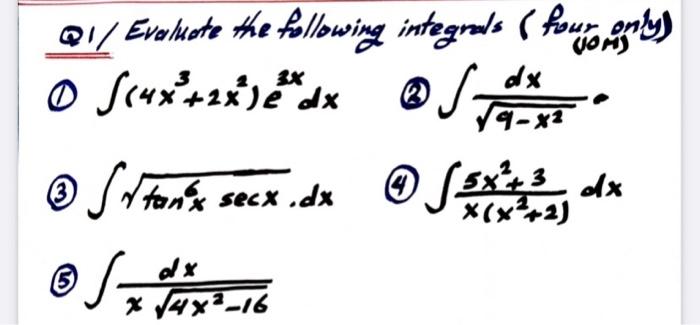 Q1/ Evaluate the following integrals (four only)
(10 M)
① ∫(4x³+2x²)e³ˣdx ② ∫ dx/√(9-x²)
③ ∫√(tan⁶x secx) .dx ④ ∫ (5x²+3)/(x(x²+2)) dx
⑤ ∫ dx/(x√(4x²-16))